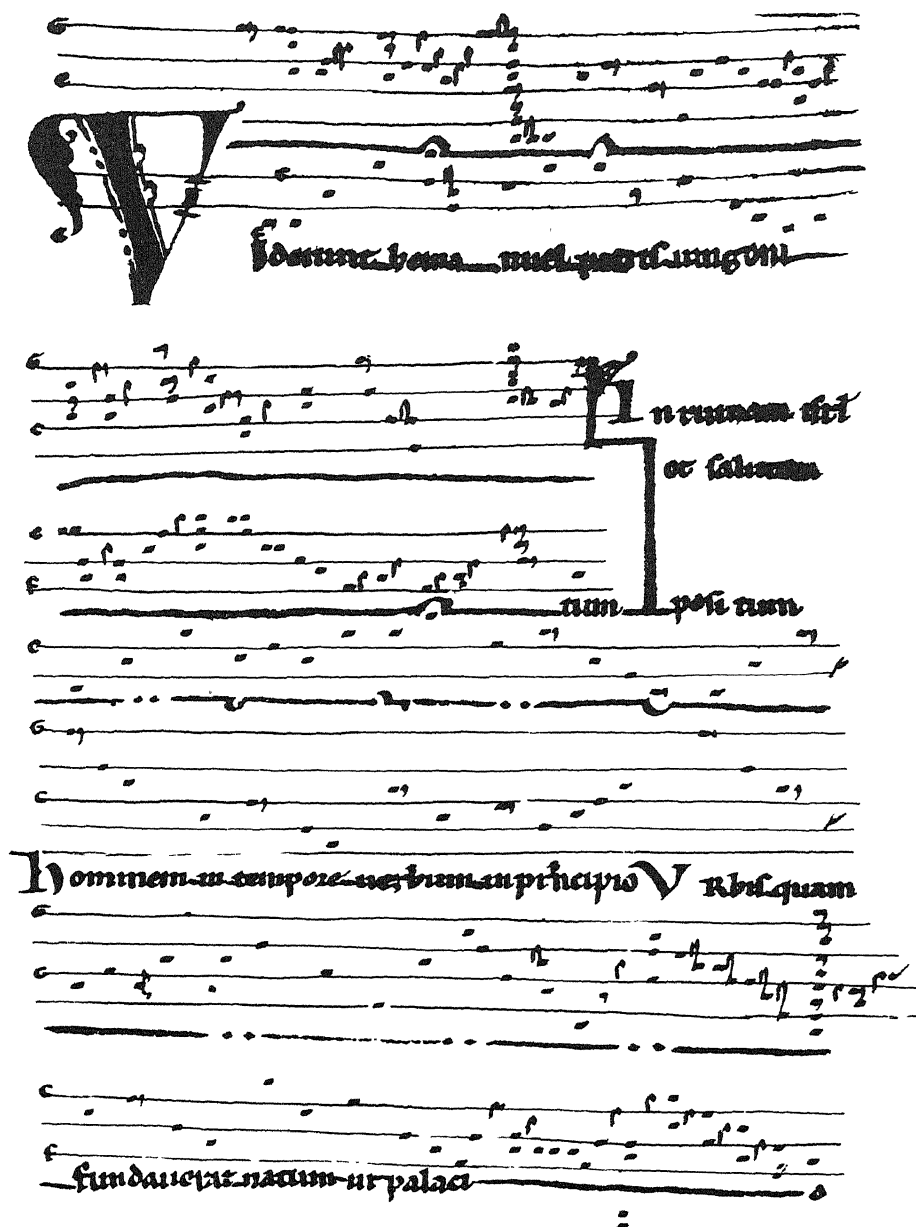 Viderunt hema nuel patris unigeni
In ruinam isrl
et salutem
tum positum
Hominem in tempore uerbum in principio Vrbis quam
fundauerat natum ut palaci